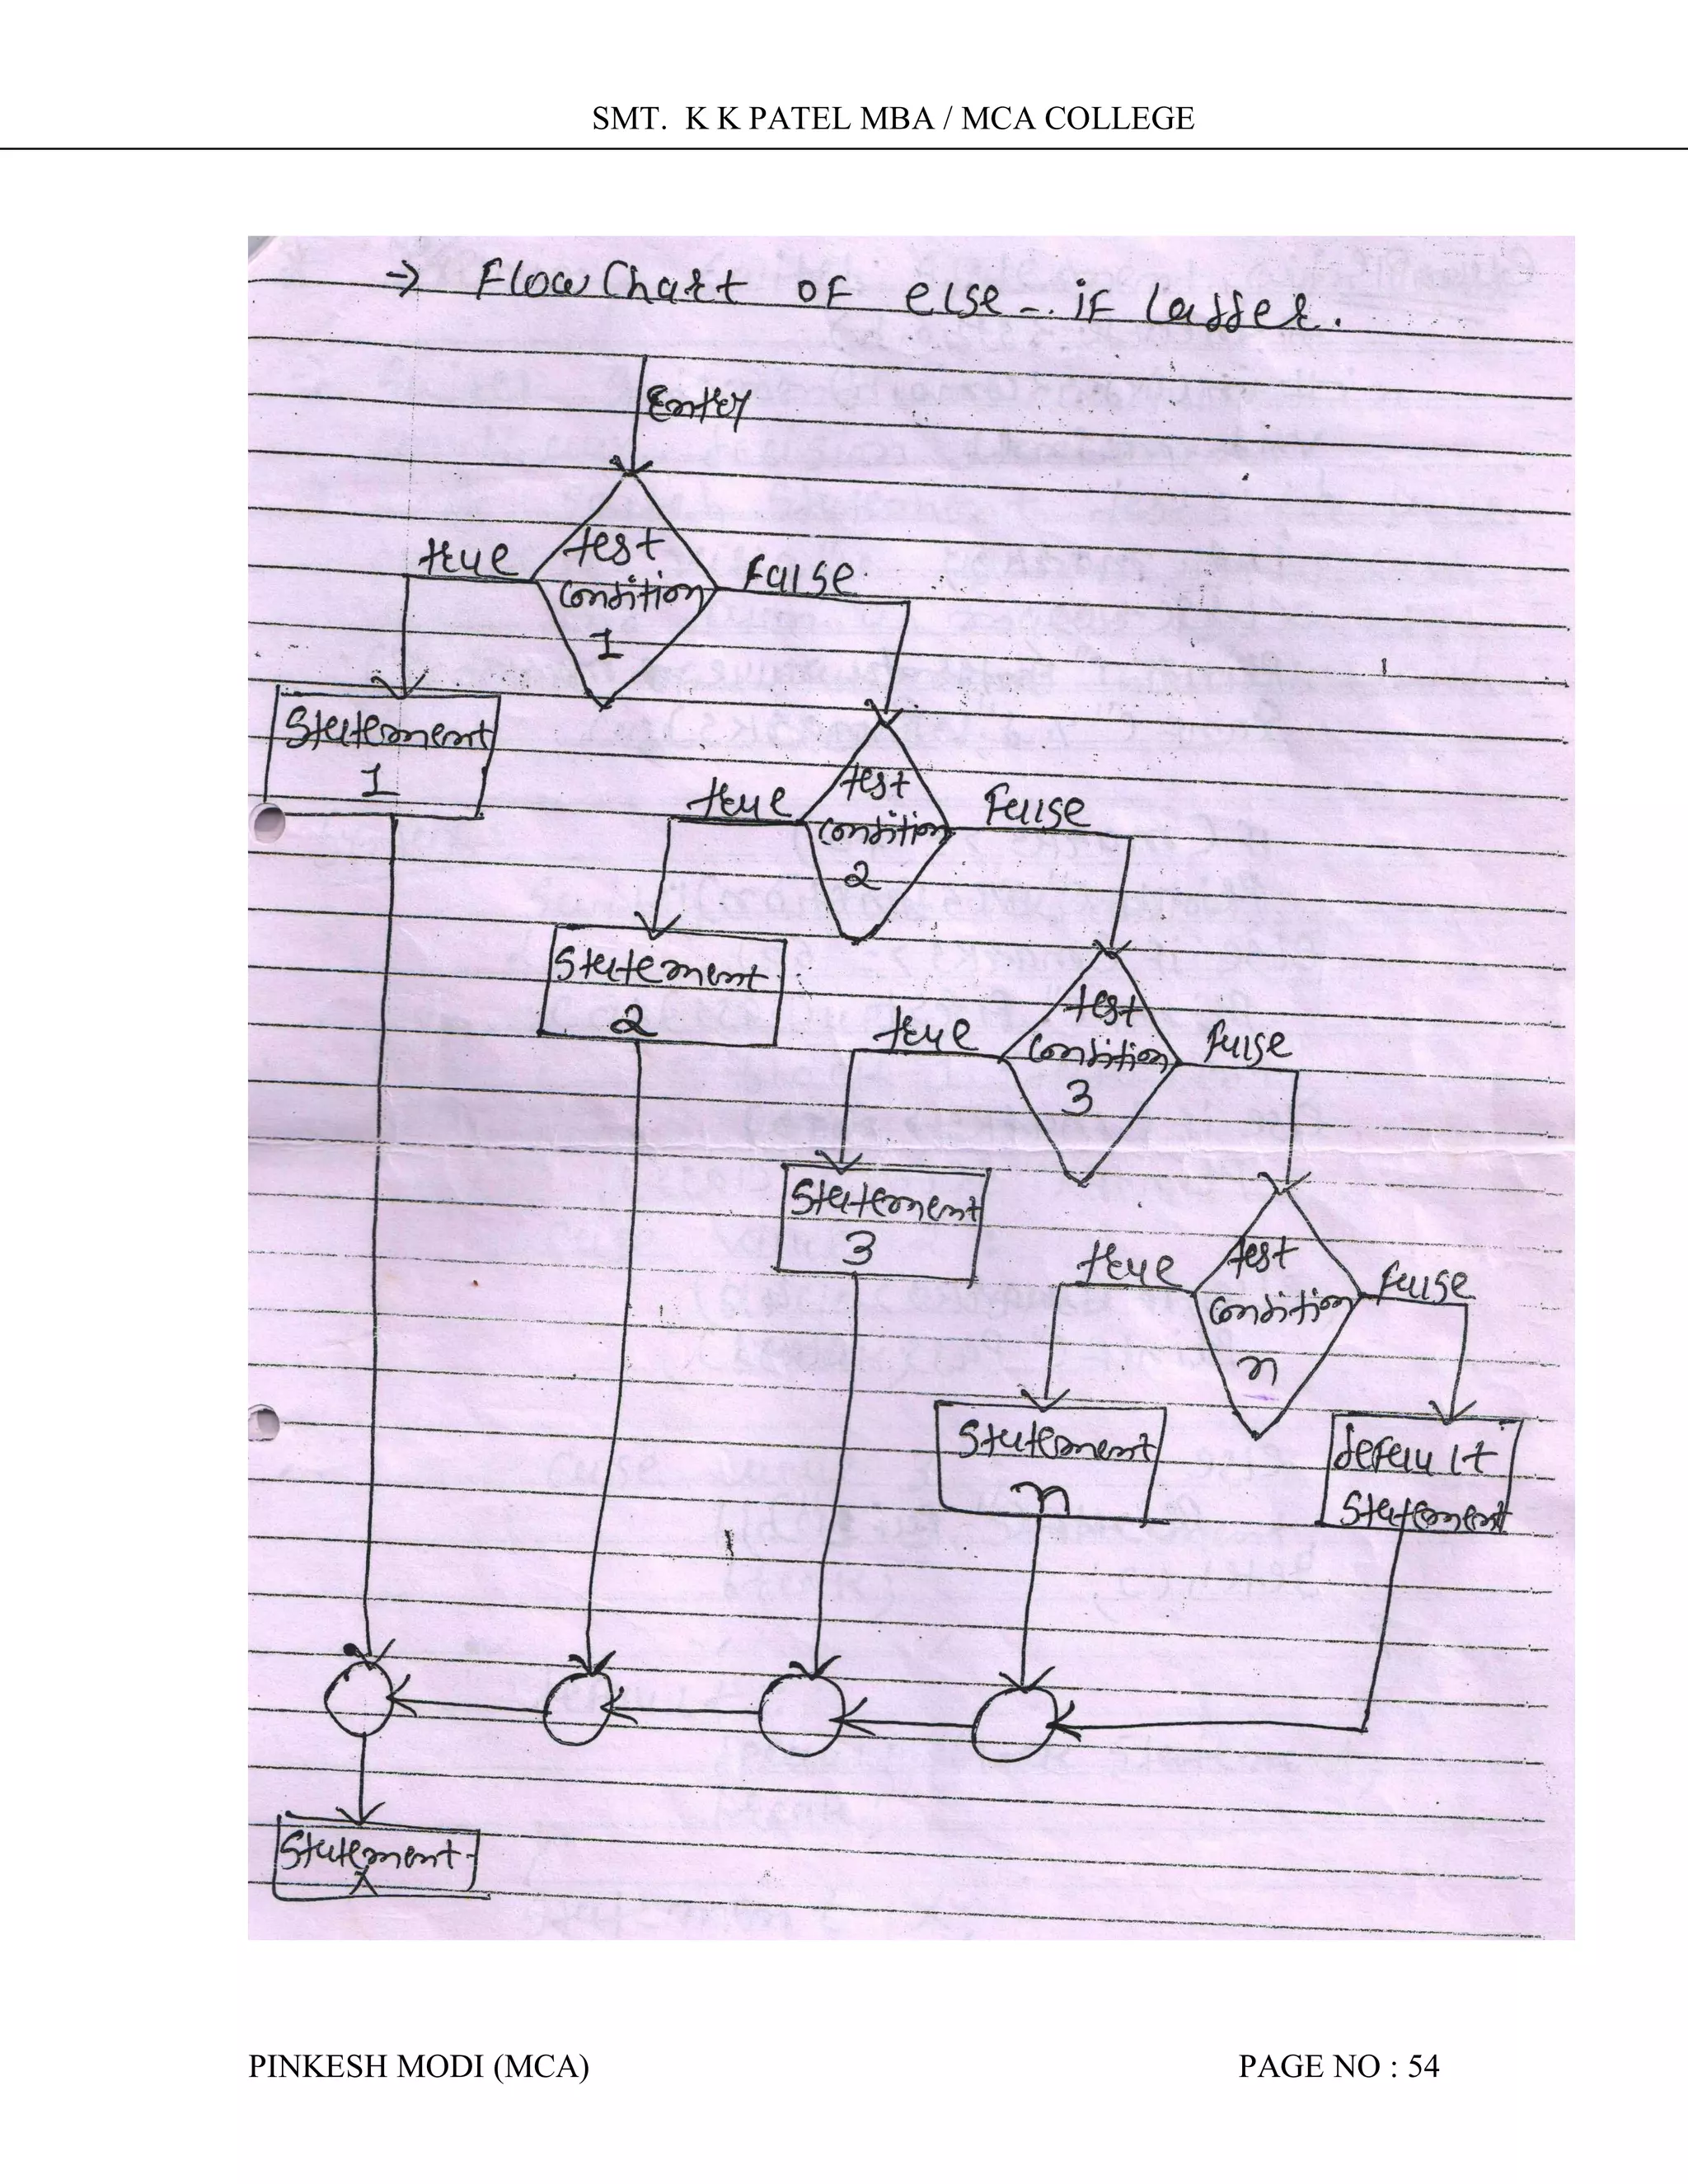 SMT. K K PATEL MBA / MCA COLLEGE
→ Flow Chart OF else-. iF Ladder.
Entry
test
condition
1
true
False
Statement
1
test
condition
2
true
False
Statement
2
test
condition
3
true
False
Statement
3
test
condition
n
true
False
Statement
n
default
Statement
Statement
X
PINKESH MODI (MCA)
PAGE NO : 54